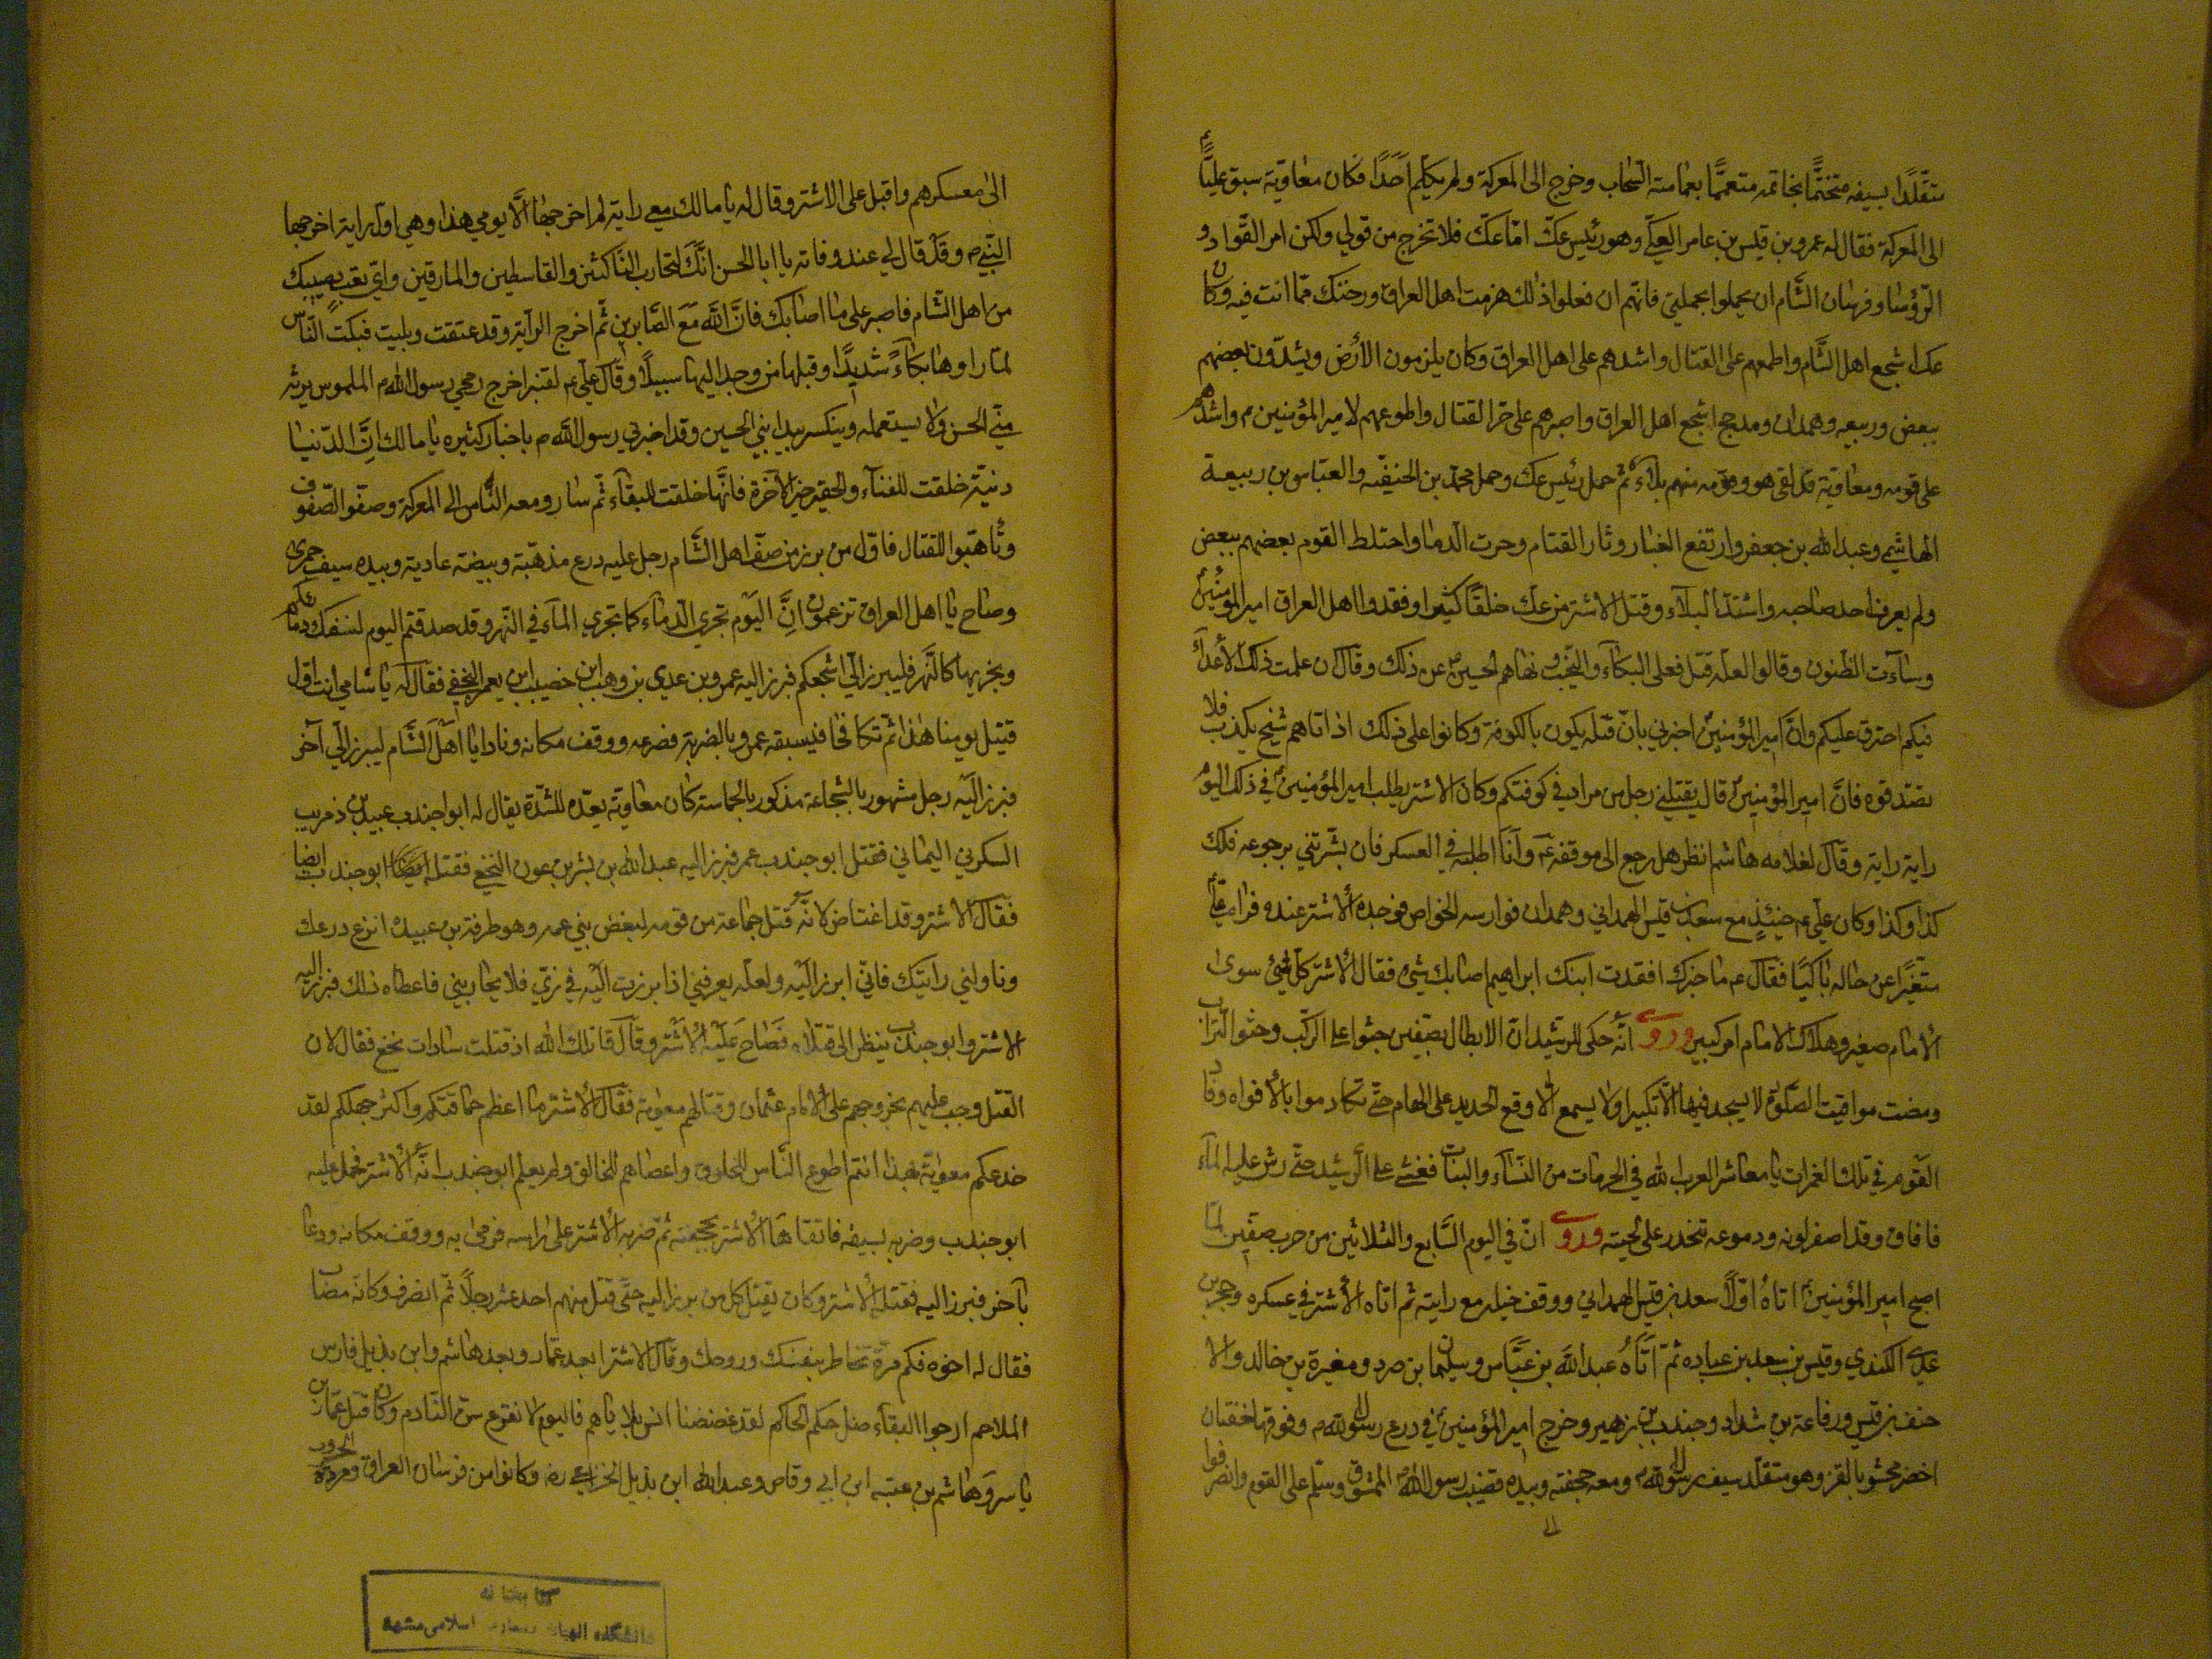 متقلّدًا بسيفه متختمًّا بخاتمه متعممًّا بعمامته السّحاب وخرج الى المعركة ولم يكلّم احَدًا فكان معاوية سبق عليًّا
الى المعركة فقال له عمرو بن قيس بن عامر العكّي وهو رئيس عكّ امّا عكّ فلا تخرج من قولي ولكن امر القوّاد و
الرّؤسا وفرسان الشّام ان يحملوا بحملتي فانهّم ان فعلوا ذلك هزمت اهل العراق ورحتك ممّا انت فيه وكان
عك اشجع اهل الشّام واطمعهم على القتال واشدهم على اهل العراق وكان يلزمون الأرض ويشدّون بعضهم
ببعض وربيعه وهمدان ومدحج اشجع اهل العراق واصبرهم على حرّ القتال واطوعهم لامير المؤمنين م واشدّهم
على قومه ومعاوية قد لقى هو وقومه منهم بلاءً ثم حمل رئيس عك وحمل محمّد بن الحنفيّه والعبّاس بن ربيعة
الهاشمي وعبد الله بن جعفر وارتفع الغبار وثار القتام وجرت الدّما واختلط القوم بعضهم ببعض
ولم يعرف احد صاحبه واشتدّ البلاء وقتل الاشتر من عك خلقًا كثيرا وفقدوا اهل العراق امير المؤمنين
وساءت الظّنون وقالوا لعلّه قتل فعلى البكاء والنّحيب ونهاهم الحسين عن ذلك وقال ان علمت ذلك الأعدآء
منكم اجترؤ عليكم وانّ امير المؤمنين اخبرني بانّ قتله يكون بالكوفة وكانوا على ذلك اذ اتاهم شيخ يكذب فلا
تصدّقوه فانّ امير المؤمنين قال يقتلني رجل من مراد في كوفتكم وكان الاشتر يطلب امير المؤمنين في ذلك اليوم
راية راية وقال لغلامه هاشم انظر هل رجع الى موقفه وانا اطلبه في العسكر فان بشّرتني برجوعه فلك
كذا وكذا وكان علي م حينئذٍ مع سعد بن قيس الهمداني وهمدان فوارسه الخواص فوجده الأشتر عنده فراه
متغيّرا عن حاله باكيًا فقال ع ما خبرك افقدت ابنك ابراهيم ام اصابك شيء فقال الأشتر كل شيئ سوى
الأمام صغير وهلاك الامام امر كبير وروي انّه حكى للرشيد انّ الابطال بصفّين جثوا على الركب وحثوا التراب
ومضت مواقيت الصّلوة لا يسجد فيها الاّ تكبيرا ولا يسمع الّا وقع الحديد على الهام حتّى تكادموا بالأفواه وقال
القوم في تلك الغمرات يا معاشر العرب الله في الحرمات من النّساء والبنات فغشي على الرّشيد حتّى رش عليه الماء
فافاق وقد اصفر لونه ودموعه تتحدر على لحيته وروي انّ في اليوم السّابع والثلاثين من حرب صفّين لمّا
اصبح امير المؤمنين اتاهُ اوّلًا سعد بن قيس الهمداني ووقف خيله مع رايته ثم اتاه الأشتر في عسكره وحجر بن
عدي الكندي وقيس بن سعد بن عباده ثمّ اتاهُ عبد الله بن عبّاس وسليمان ابن صرد ومغيرة بن خالد والا
حنف بن قيس ورفاعة بن شداد وجندب بن زهير وخرج امير المؤمنين في درع رسول الله م وفوقها خفتان
اخضر محشو بالقز وهو متقلّد سيف رسول الله ومعه حجفته وبيده قضيب رسول الله الممشوق وسلّم على القوم وانصرفوا
الى معسكرهم واقبل على الاشتر وقال له يا مالك معي راية لم اخرجها الّا يومي هذا وهي اول راية اخرجها
النّبي م وقد قال لي عند وفاته يا ابا الحسن انّك لتحارب النّاكثين والقاسطين والمارقين واي تعب يصيبك
من اهل الشّام فاصبر على ما اصابك فانّ الله مع الصّابرين ثم اخرج الراية وقد عتقت وبليت فبكت النّاس
لمّا راوها بكاءً شديدًا وقبلها من وجد اليها سبيلًا وقال علي ع لقنبر اخرج رمحي رسول الله م الملموس يرثه
منّي الحسن ولا يستعمله وينكسر بيد ابني الحسين وقد اخبرني رسول الله م باخبار كثيره يا مالك انّ الدّنيا
دنيّه خلقت للفناء ولحقير خير الآخرة فانّها خلقت للبقاء ثمّ سار ومعه النّاس الى المعركة وصفّوا الصّفوف
وتأهبّوا للقتال فاوّل من برز من صفّ اهل الشّام رجل عليه درع مذهّبة وبيضة عادية وبيده سيف حميري
وصاح يا اهل العراق تزعمون انّ اليوم تجري الدّماء كما تجري الماء في النّهر وقد صدقتم اليوم لنسفك دماءكم
ونجريها كالنّهر فليبرز اليّ اشجعكم فبرز اليه عمرو بن عدي بن وهب ابن خصيب ابن يعمر النخعي فقال له يا شامي انت اوّل
قتيل يومنا هذا ثم تكافحا فسبقه عمرو بالضربة فصرعه ووقف مكانه ونادا يا اهل الشّام ليبرز اليّ آخر
فبرز اليه رجل مشهور بالشّجاعة مذكور بالحماسة كان معاوية يعدّه للشدّة يقال له ابو جندب عبيد بن ذمريب
السكوني اليماني فقتل ابو جندب عمر فبرز اليه عبد الله بن بشر بن عون النخعي فقتله ابو جندب ايضا
فقال الاشتر وقد اغتاض لانّه قتل جماعة من قومه لبعض بني عمه وهو طرفة بن عبيده انزع درعك
وناولني رايتك فانّي ابرز اليه ولعلّه يعرفني اذا برزت اليه في زيّي فلا يحاربني فاعطاه ذلك فبرز اليه
الاشتر وابو جندب ينظر الى قتلاه فصاح عليه الاشتر وقال قاتلك الله اذ قتلت سادات نخع فقال لان
القتل وجب عليهم بخروجهم على الامام عثمان وقتالهم معوية فقال الأشتر ما اعظم حماقتكم واكثر جهلكم لقد
خدعكم معوية بهذا انتم اطوع النّاس للمخلوق واعصاهم للخالق ولم يعلم ابو جندب انّه الأشتر فحمل عليه
ابو جندب وضربه بسيفه فاتقاها الأشتر بحجفته ثمّ ضربه الأشتر على راسه فرمى به ووقف مكانه ودعا
بآخر فبرز اليه فقتله الأشتر وكان يقتل كل من برز اليه حتّى قتل منهم احد عشر رجلًا ثمّ انصرف وكانه مصاب
فقال له اخوه فكم مرّة تخاطر بنفسك وروحك وقال الاشتر ابعد عمّار وبعد هاشم وابن بذيل فارس
الملاحم ارجوا البقاء ضل حكم الحاكم لقد غضضنا فاليوم لا نقرع سنّ النّادم وكان قتل عمّار بن
ياسر وهاشم بن عتبه ابن ابي وقاص وعبد الله ابن بذيل الخزاعي رض وكانوا من فرسان العراق ومردة الحروب
كتابخانه
دانشکده الهیات و معارف اسلامی مشهد